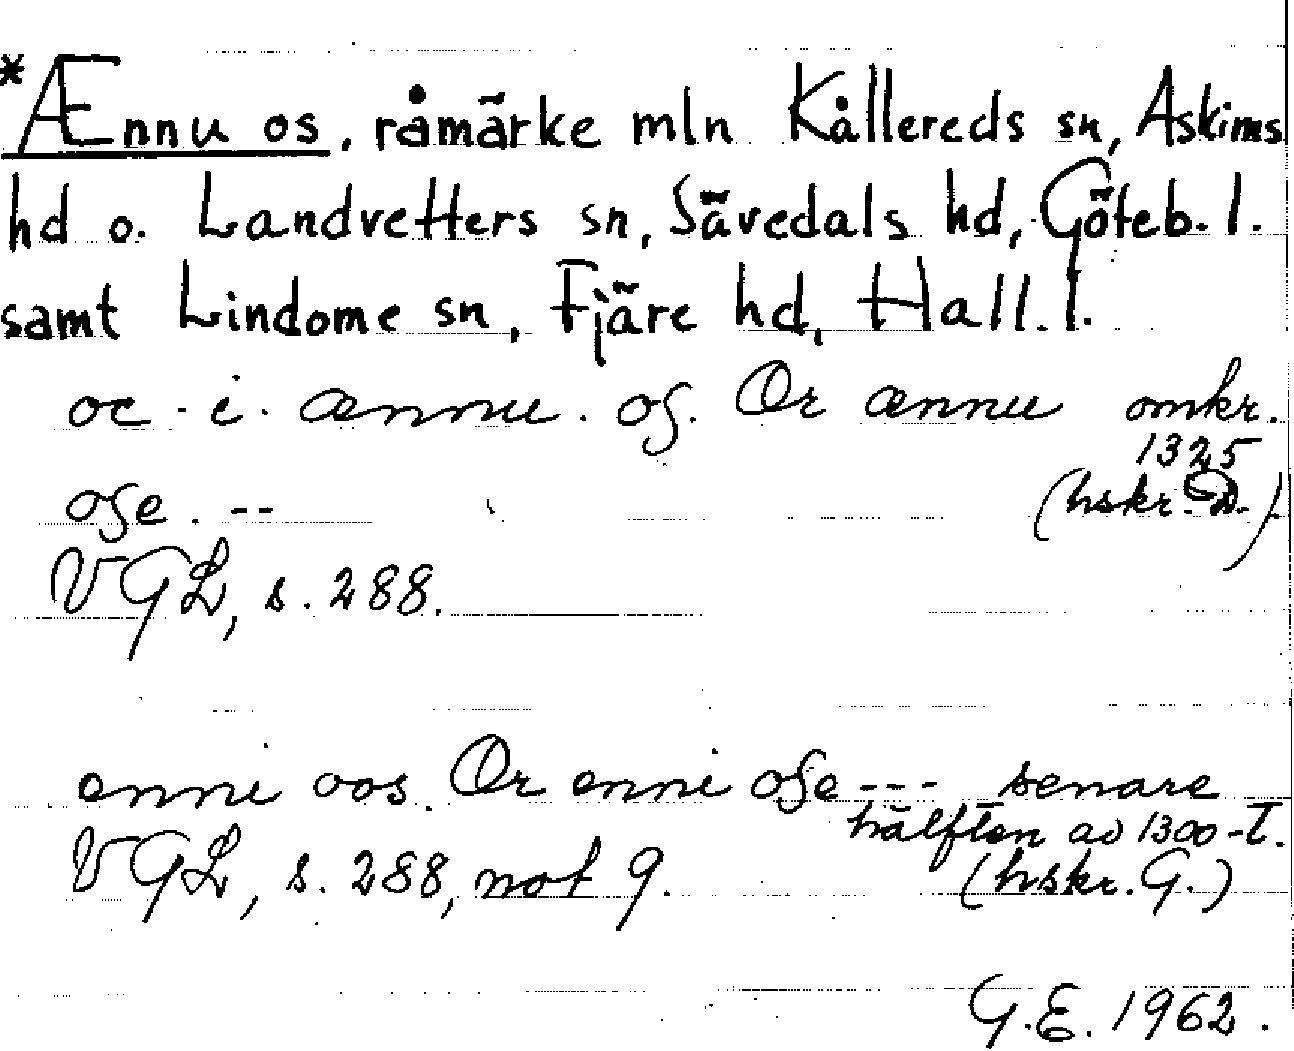 *Ænnu os, råmärke mln Kållereds sn, Askims
hd o. Landvetters sn, Sävedals hd, Göteb. l.
samt Lindome sn, Fjäre hd, Hall. l.
oc · i · ænnu · os. Or ænnu omkr.
1325
ose. -- (hskr. D.)
VGL, s. 288.
enni oos. Or enni ose --- senare
hälften av 1300-t.
VGL, s. 288, not 9. (hskr. G.)
G.E. 1962.